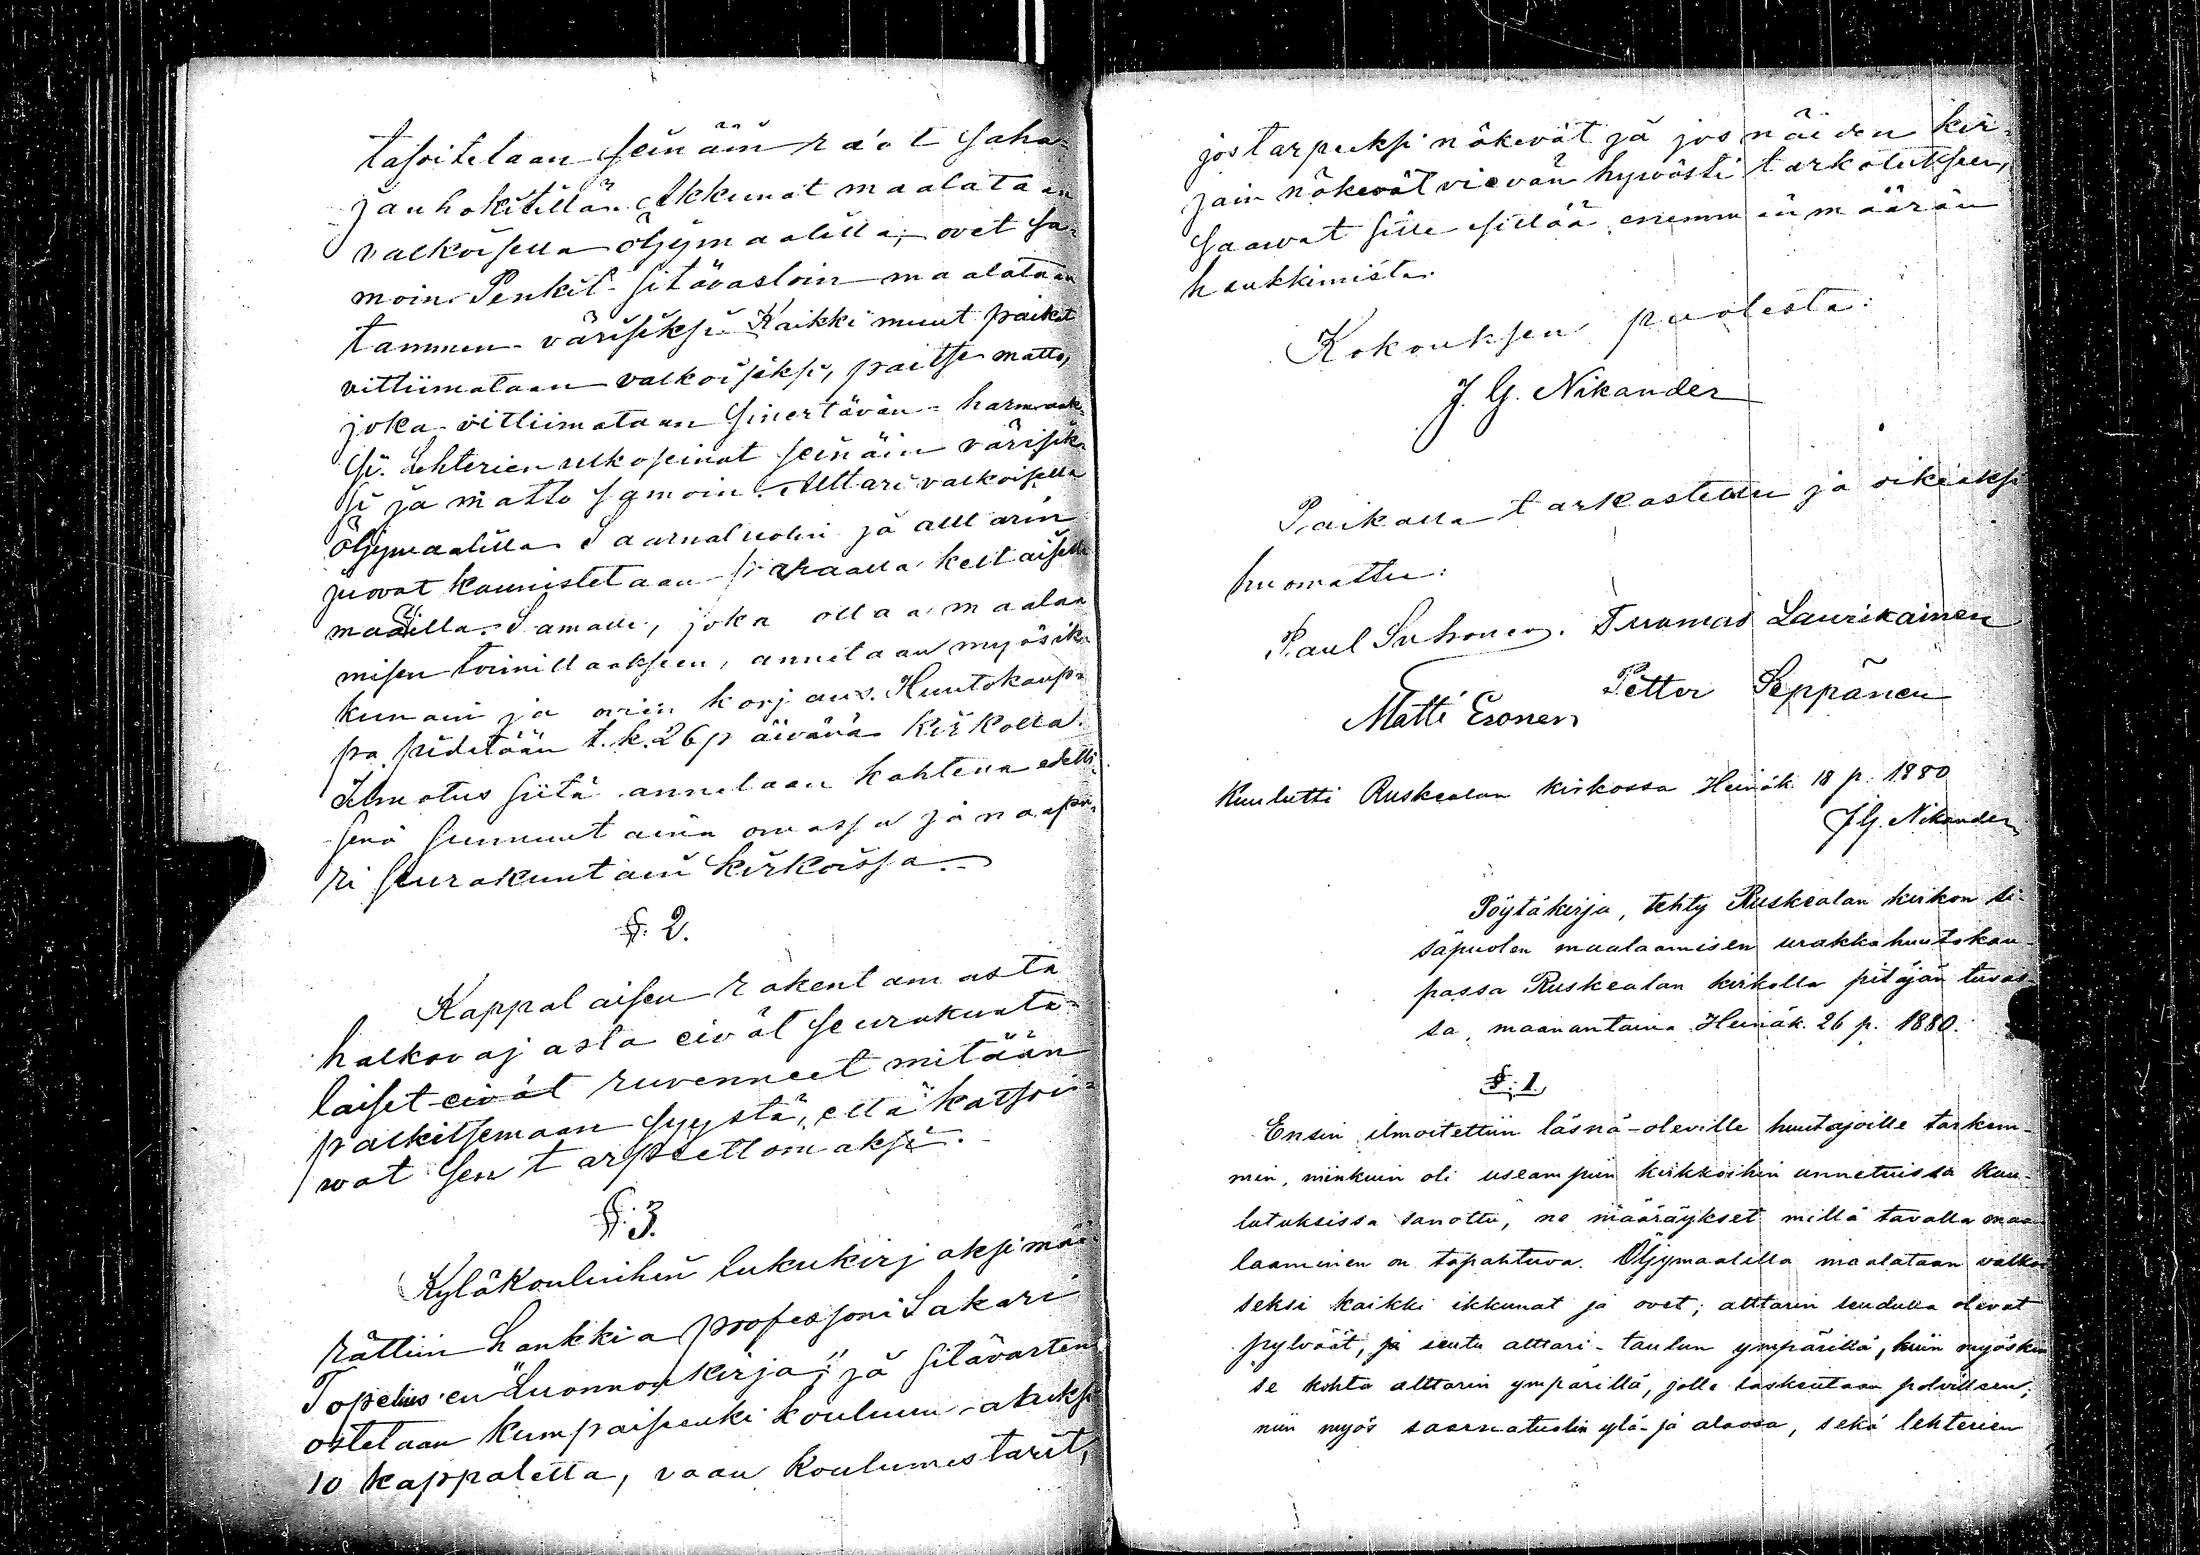 tasoitetaan seinäin ra'ot saha-
jauhokitillä. Akkunat maalataan
valkoisella öljymaalilla; ovet sa-
moin. Penkit sitävastoin maalataan
tammen-värisiksi. Kaikki muut paikat
vittiimataan valkoisiksi, paitse matto,
joka vittiimataan sinertävän-harmaak-
si. Lehterien ulkoseinat seinäin värisik-
si ja matto samoin. Alttari valkoisella
Öljymaalilla Saarnatuolin ja alttarin
juovat kaunistetaan keltaisella
maalilla. Samalle, joka ottaa maalaa-
misen toimittaaksen, annetaan myös ik-
kunain ja ovien korjaus. Huutokaup-
pa pidetään t.k. 26 p äivänä Kirkolla.
Ilmotus siitä annetaan kahtena edelli-
senä sunnuntaina omassa ja naapu-
ri seurakuntain kirkoissa.
§. 2.
Kappalaisen rakentamasta
halkovajasta eivät seurakunta-
laiset eivät ruvenneet mitään
palkitsemaan syystä, että katsoi-
wat sen tarpeettomaksi.
§. 3.
Kyläkouluihin lukukirjaksi mää-
rättiin hankkia professori Sakari
Topelius'en "Luonnonkirja" ja sitävarten
ostetaan kumpaiseenki kouluun aluksi
10 kappaletta, vaan Koulumestarit,
jos tarpeeksi näkevät ja jos näiden kir-
jain näkevät vievän hyvästi tarkotukseen,
saawat sille sittää enemmän määrän
hankkimista.
Kokouksen puolesta:
J. G. Nikander
Paikalla tarkastettu ja oikeaksi
huomattu:
Paul Suhonen. Tuomas Laurikainen
Matti Esonen Petter Seppänen
Kuulutti Ruskealan kirkossa Heinäk. 18 p. 1880
J G. Nikander
Pöytäkirja, tehty Ruskealan kirkon si-
säpuolen maalaamisen urakkahuutokau-
passa Ruskealan kirkolla pitäjän tuvas-
sa, maanantaina Heinäk. 26 p. 1880.
§. 1.
Ensin ilmoitettiin läsnä-oleville huutajoille tarkem-
min, niinkuin oli useampiin kirkkoihin annetuissa kuu-
lutuksissa sanottu, ne määräykset millä tavalla maa-
laaminen on tapahtuva. Öljymaalilla maalataan valkoi
seksi kaikki ikkunat ja ovet; alttarin seudulla olevat
pylväät, ja seutu alttari-taulun ympärillä, kuin myöskin
se kohta alttarin ympärillä, jolle laskeutaan polvilleen;
niin myös saarnatuolin ylä- ja alaosa, sekä lehterien